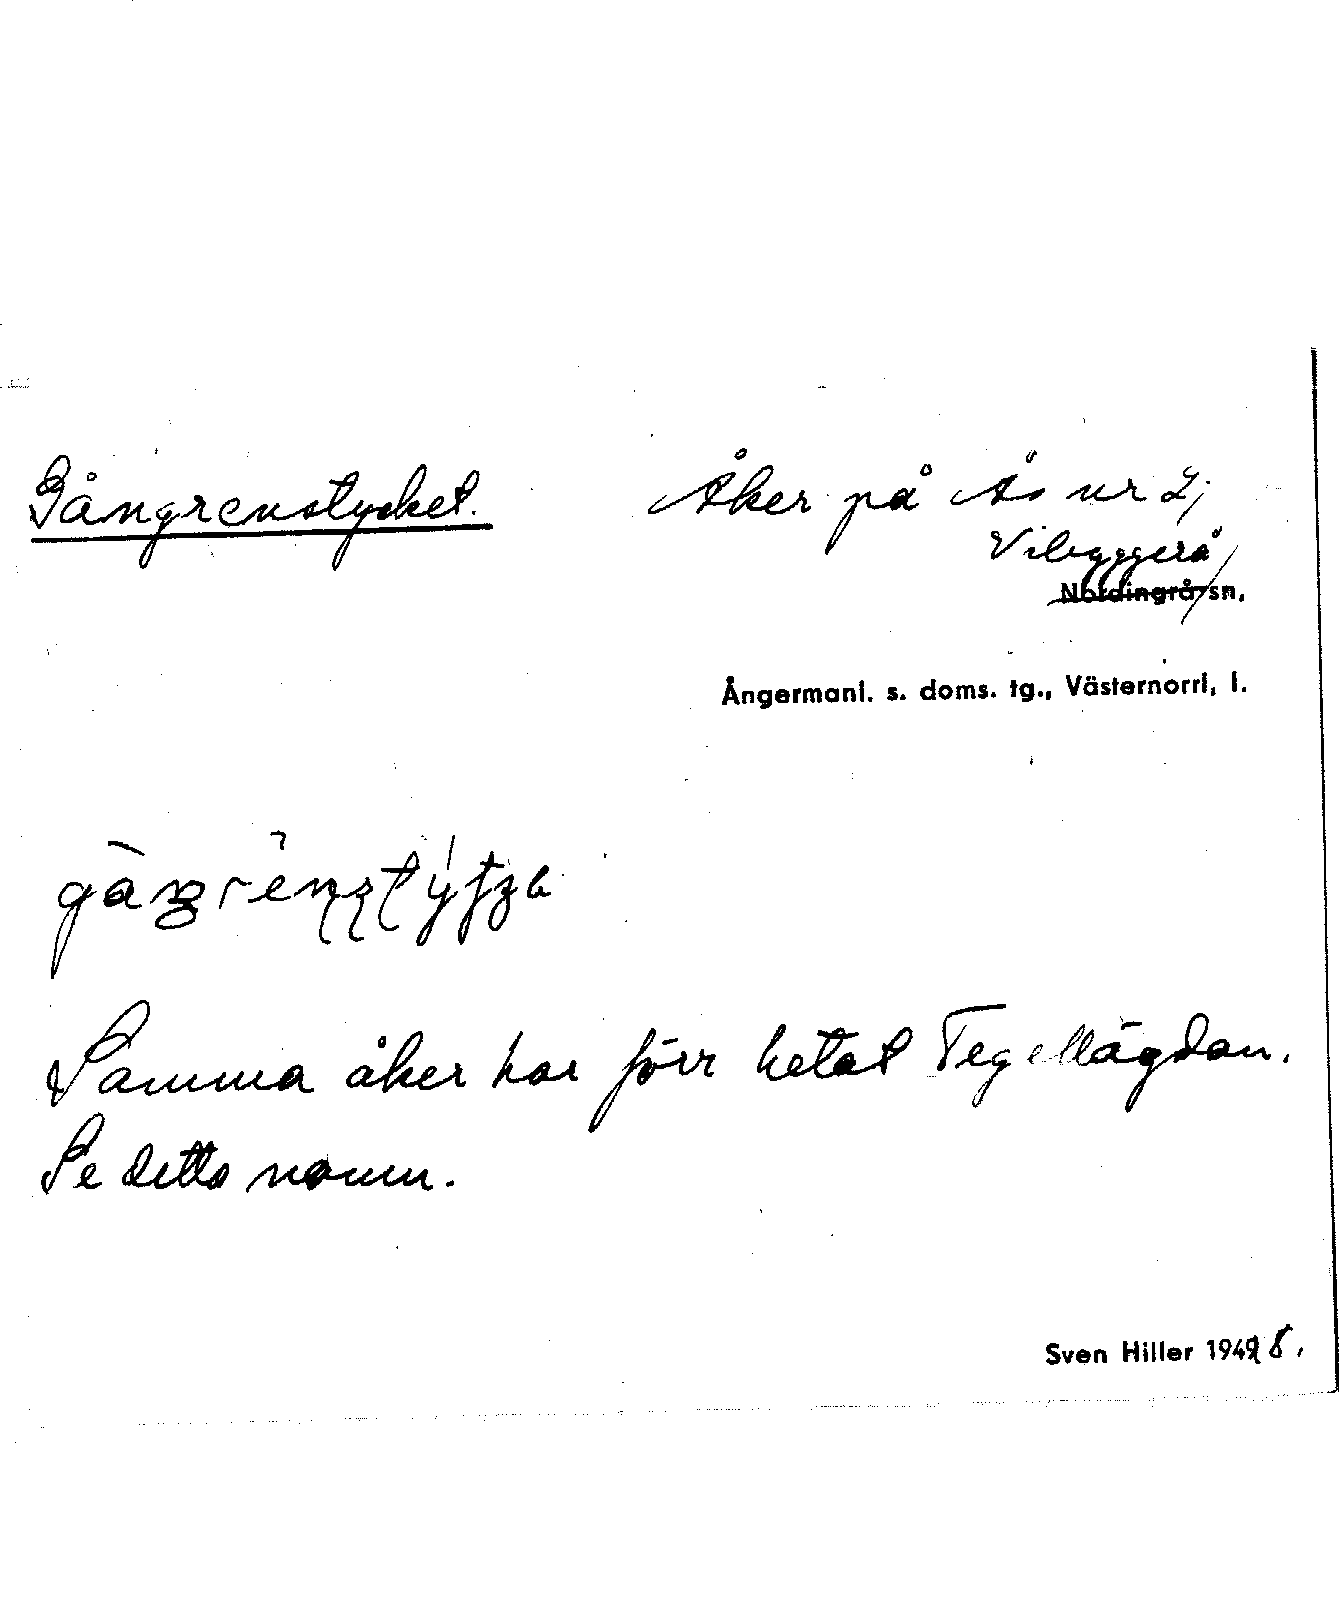 Gångrenstycket. Åker på Ås nr 2,
Vibyggerå
Nordingrå sn,
Ångermanl. s. doms. tg., Västernorrl, l.
Samma åker har förr hetat Tegellägdan.
Se detta namn.
Sven Hiller 1949 8.